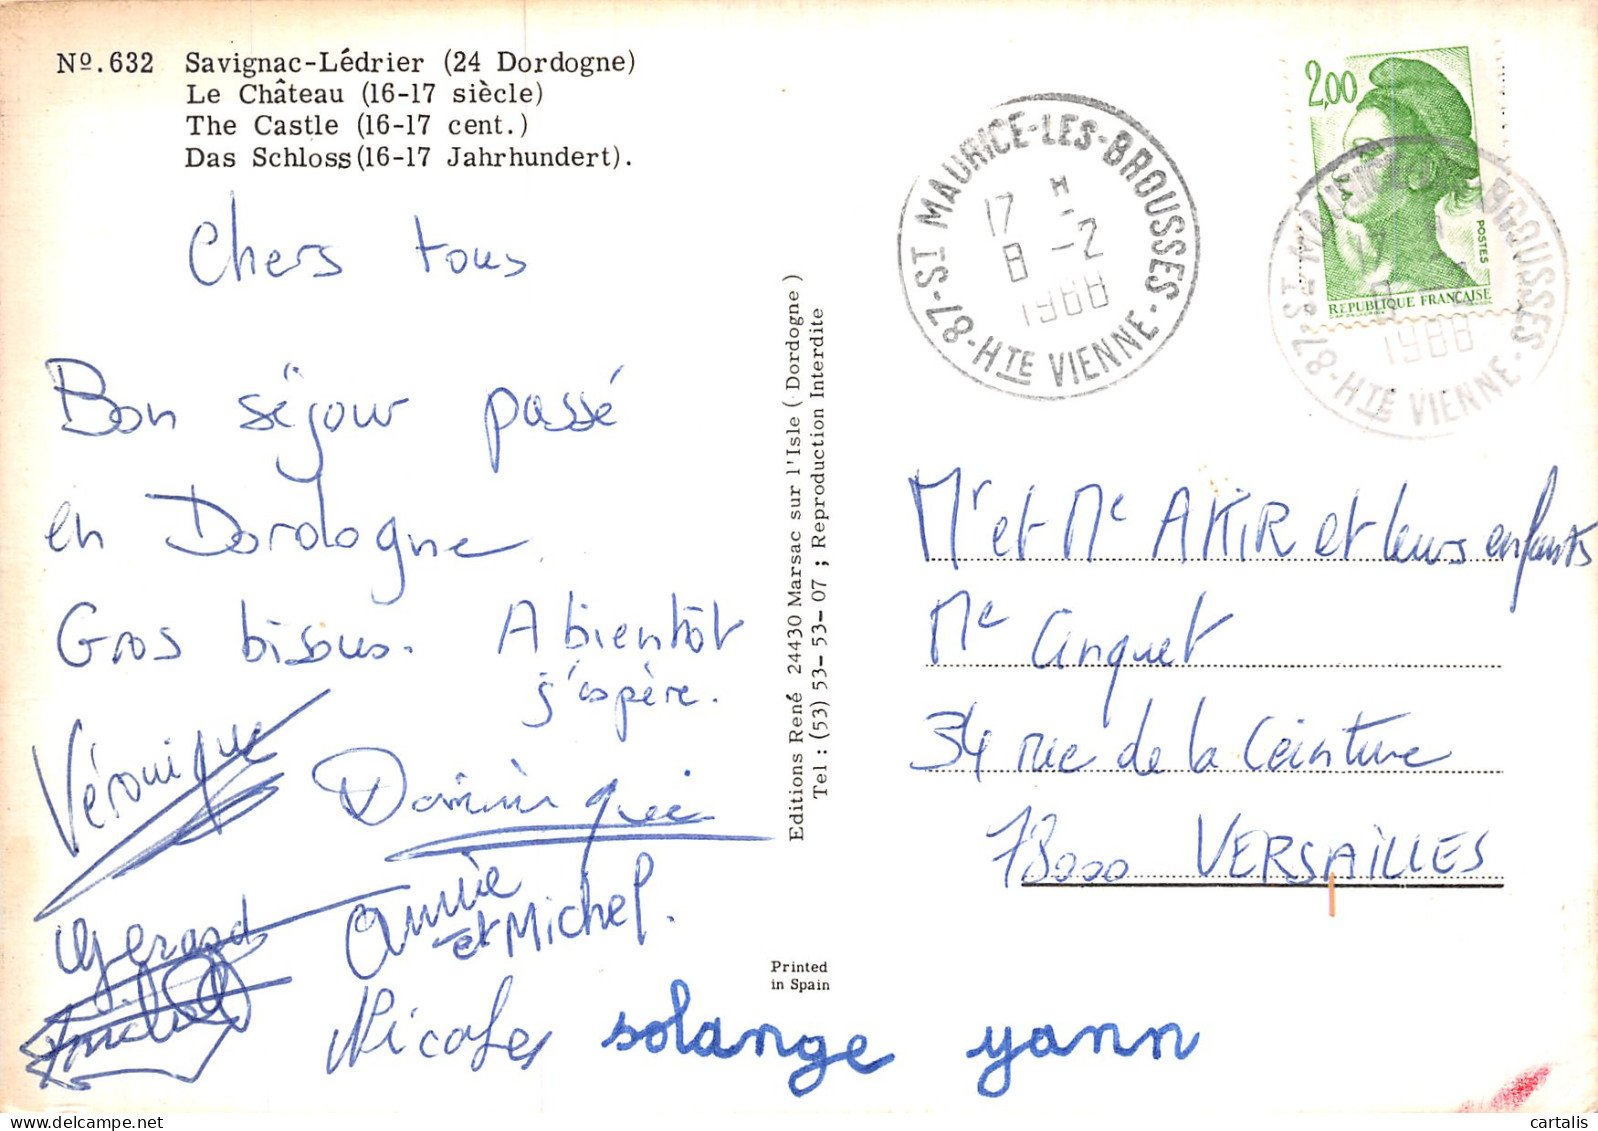 Nº.632 Savignac-Lédrier (24 Dordogne)
Le Château (16-17 siècle)
The Castle (16-17 cent.)
Das Schloss(16-17 Jahrhundert).
Chers tous
Bon séjour passé
en Dordogne.
Gros bisous. A bientôt
j'espère.
Véronique
Dominique
Gérard
Annie
et Michel.
Nicolas
solange yann
Editions René 24430 Marsac sur l'Isle ( Dordogne )
Tel : (53) 53-53-07 ; Reproduction Interdite
Printed
in Spain
87-ST MAURICE-LES-BROUSSES-HTE VIENNE
17 H
8 -2
1988
2,00
POSTES
REPUBLIQUE FRANÇAISE
87-ST MAURICE-LES-BROUSSES-HTE VIENNE
1988
Mr et Me AKIR et leurs enfants
Me Anquet
34 rue de la Ceinture
78000 VERSAILLES
cartalis